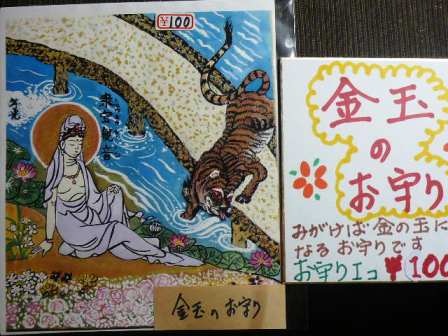 ¥100
金玉のお守り
金玉
の
お守り
みがけば金の玉に
なるお守りです
お守り1コ ¥100